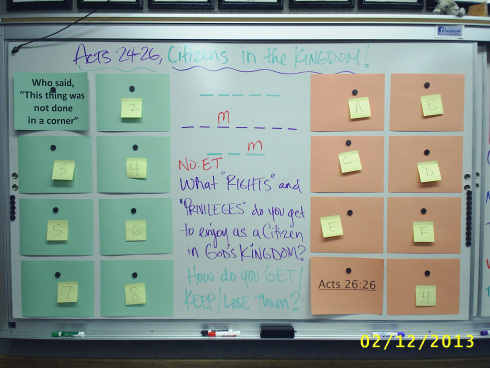 Acts 24-26, Citizens in the Kingdom!
Who said,
"This thing was
not done
in a corner"
2
3
4
5
6
7
8
m
m
NO: ET
What "RIGHTS" and
"PRIVILEGES" do you get
to enjoy as a Citizen
in GOD'S KINGDOM?
How do you GET/
KEEP/LOSE them?
A
B
C
D
E
F
Acts 26:26
H
02/12/2013